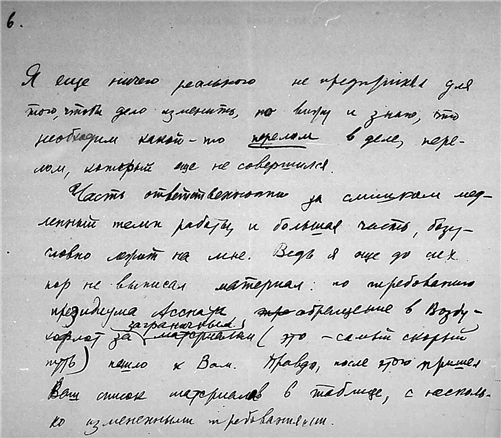 6.
Я еще ничего реального не предпринял для
того, чтобы дело изменить, но вижу и знаю, что
необходим какой-то перелом в деле, пере-
лом, который еще не совершился.
Часть ответственности за слишком мед-
ленный темп работы, и большая часть, безу-
словно лежит на мне. Ведь я еще до сих
пор не выписал материал: по требованию
президиума Асснат, обращение в Возду-
хофлот за заграничным материалом (это – самый скорый
путь) пошло к Вам. Правда, после этого пришел
Ваш список материалов в таблице, с несколь-
ко измененными требованиями.